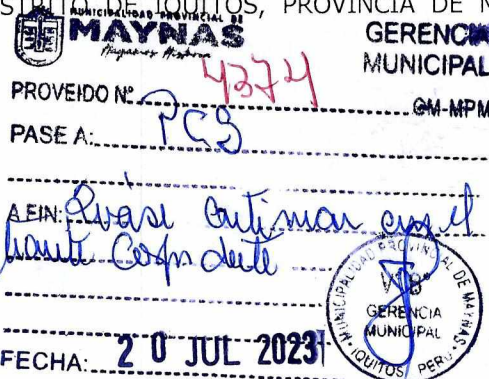 DISTRITO DE IQUITOS, PROVINCIA DE M
MUNICIPALIDAD PROVINCIAL DE
MAYNAS
Hagamos Historia
GERENCIA
MUNICIPAL
4374
PROVEIDO N° GM-MPM
PASE A: PCS
A FIN: Sirvase continuar con el
tramite Corpndiente
MUNICIPALIDAD PROVINCIAL DE MAYNAS
V°B°
GERENCIA
MUNICIPAL
IQUITOS PERU
FECHA: 20 JUL 2023